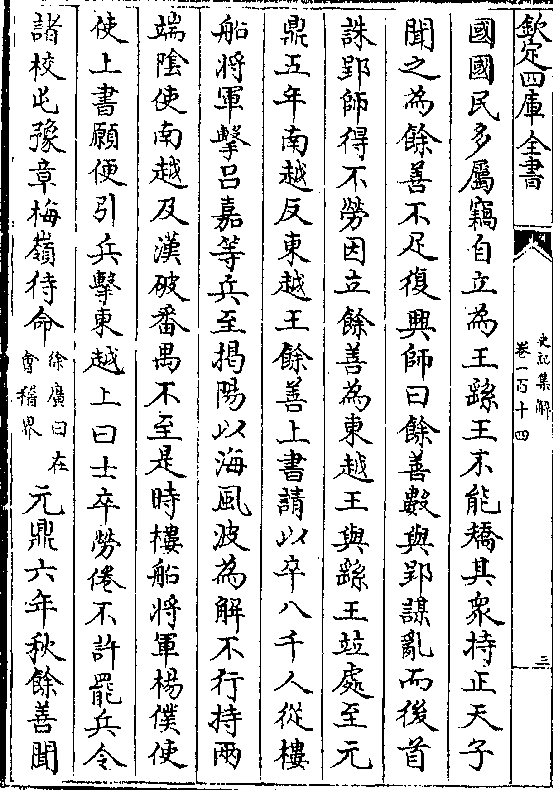 欽定四庫全書
史記集解
卷一百十四
三
國國民多屬竊自立為王繇王不能矯其衆持正天子
聞之為餘善不足復興師曰餘善數與郢謀亂而後首
誅郢師得不勞因立餘善為東越王與繇王竝處至元
鼎五年南越反東越王餘善上書請以卒八千人從樓
船將軍擊吕嘉等兵至揭陽以海風波為解不行持兩
端隂使南越及漢破番禺不至是時樓船將軍楊僕使
使上書願便引兵擊東越上曰士卒勞倦不許罷兵令
諸校屯豫章梅嶺待命徐廣曰在會稽界元鼎六年秋餘善聞